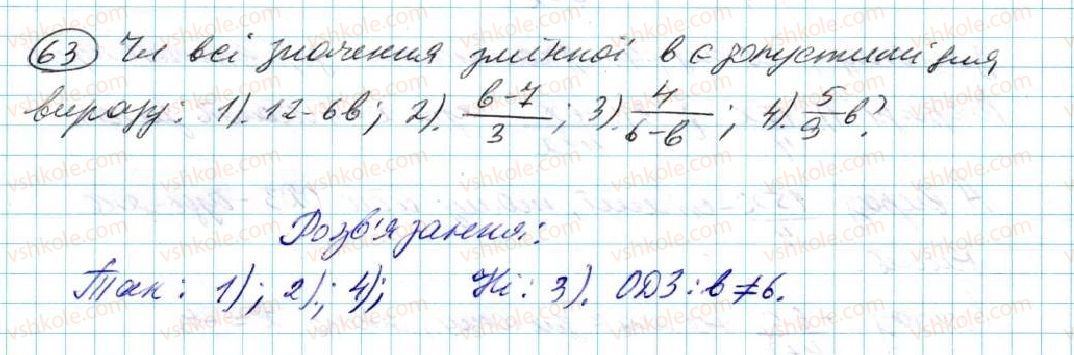 63 Чи всі значення змінної b є допустимі для
виразу: 1). 12-6b; 2). (b-7)/3; 3). 4/(6-b); 4). 5/9 b?
Розв'язання:
Так: 1); 2); 4); Ні: 3). ОДЗ: b≠6.